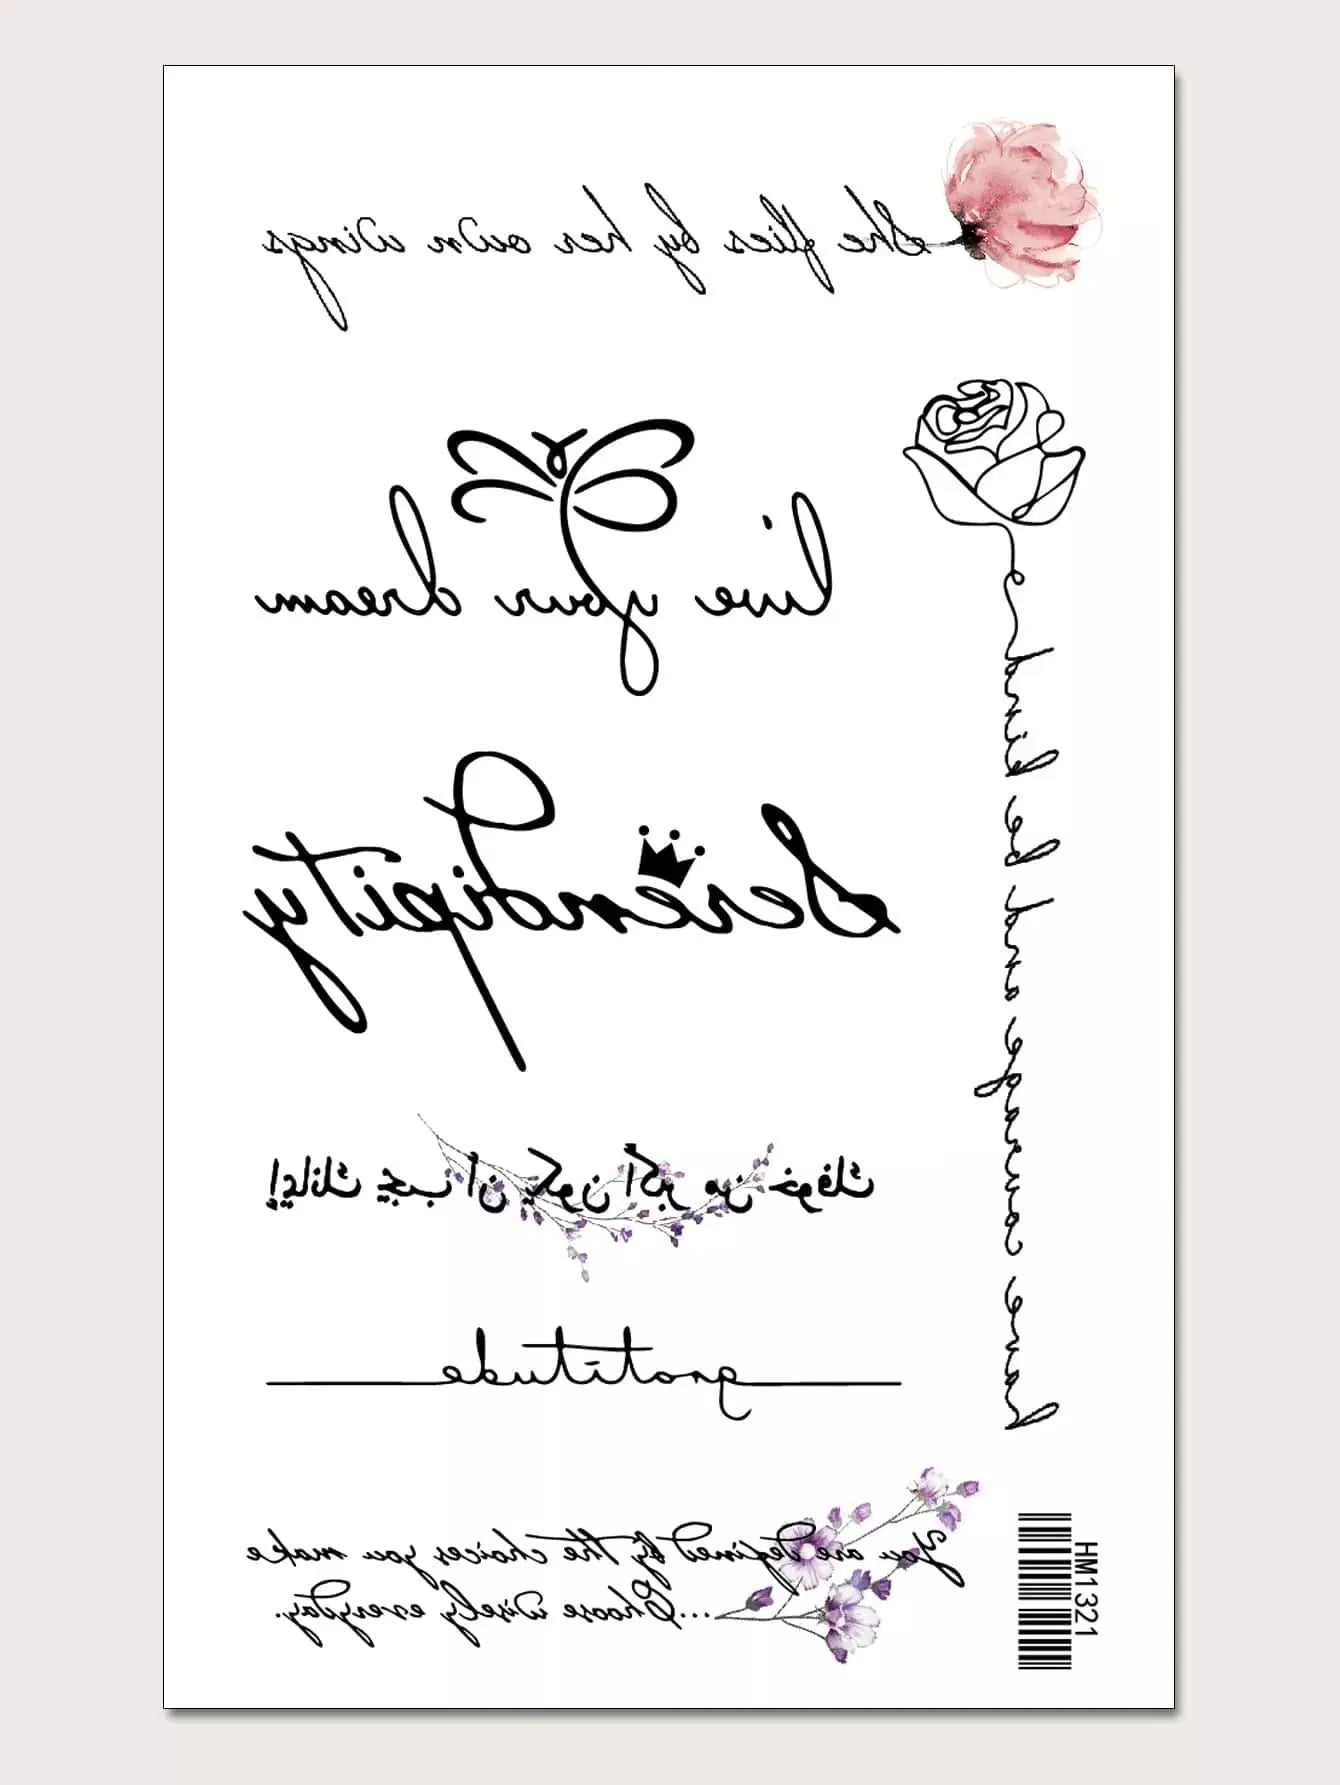 She flies by her own wings
live your dream
have courage and be kind
Serendipity
إيمانك يجب أن يكون أكبر من خوفك
gratitude
You are defined by the choices you make
...Choose wisely everyday.
HM1321